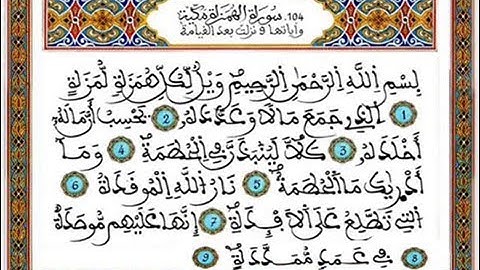 104. سورة الهمزة مكية
وآياتها 9 نزلت بعد القيامة
بِسْمِ اللَّهِ الرَّحْمَٰنِ الرَّحِيمِ وَيْلٌ لِّكُلِّ هُمَزَةٍ لُّمَزَةٍ
1 الَّذِي جَمَعَ مَالًا وَعَدَّدَهُ 2 يَحْسِبُ أَنَّ مَالَهُ
أَخْلَدَهُ 3 كَلَّا لَيُنبَذَنَّ فِي الْحُطَمَةِ 4 وَمَا
أَدْرَيٰكَ مَا الْحُطَمَةُ 5 نَارُ اللَّهِ الْمُوقَدَةُ 6
الَّتِي تَطَّلِعُ عَلَى الْأَفْئِدَةِ 7 إِنَّهَا عَلَيْهِم مُّوصَدَةٌ
8 فِي عَمَدٍ مُّمَدَّدَةٍ 9